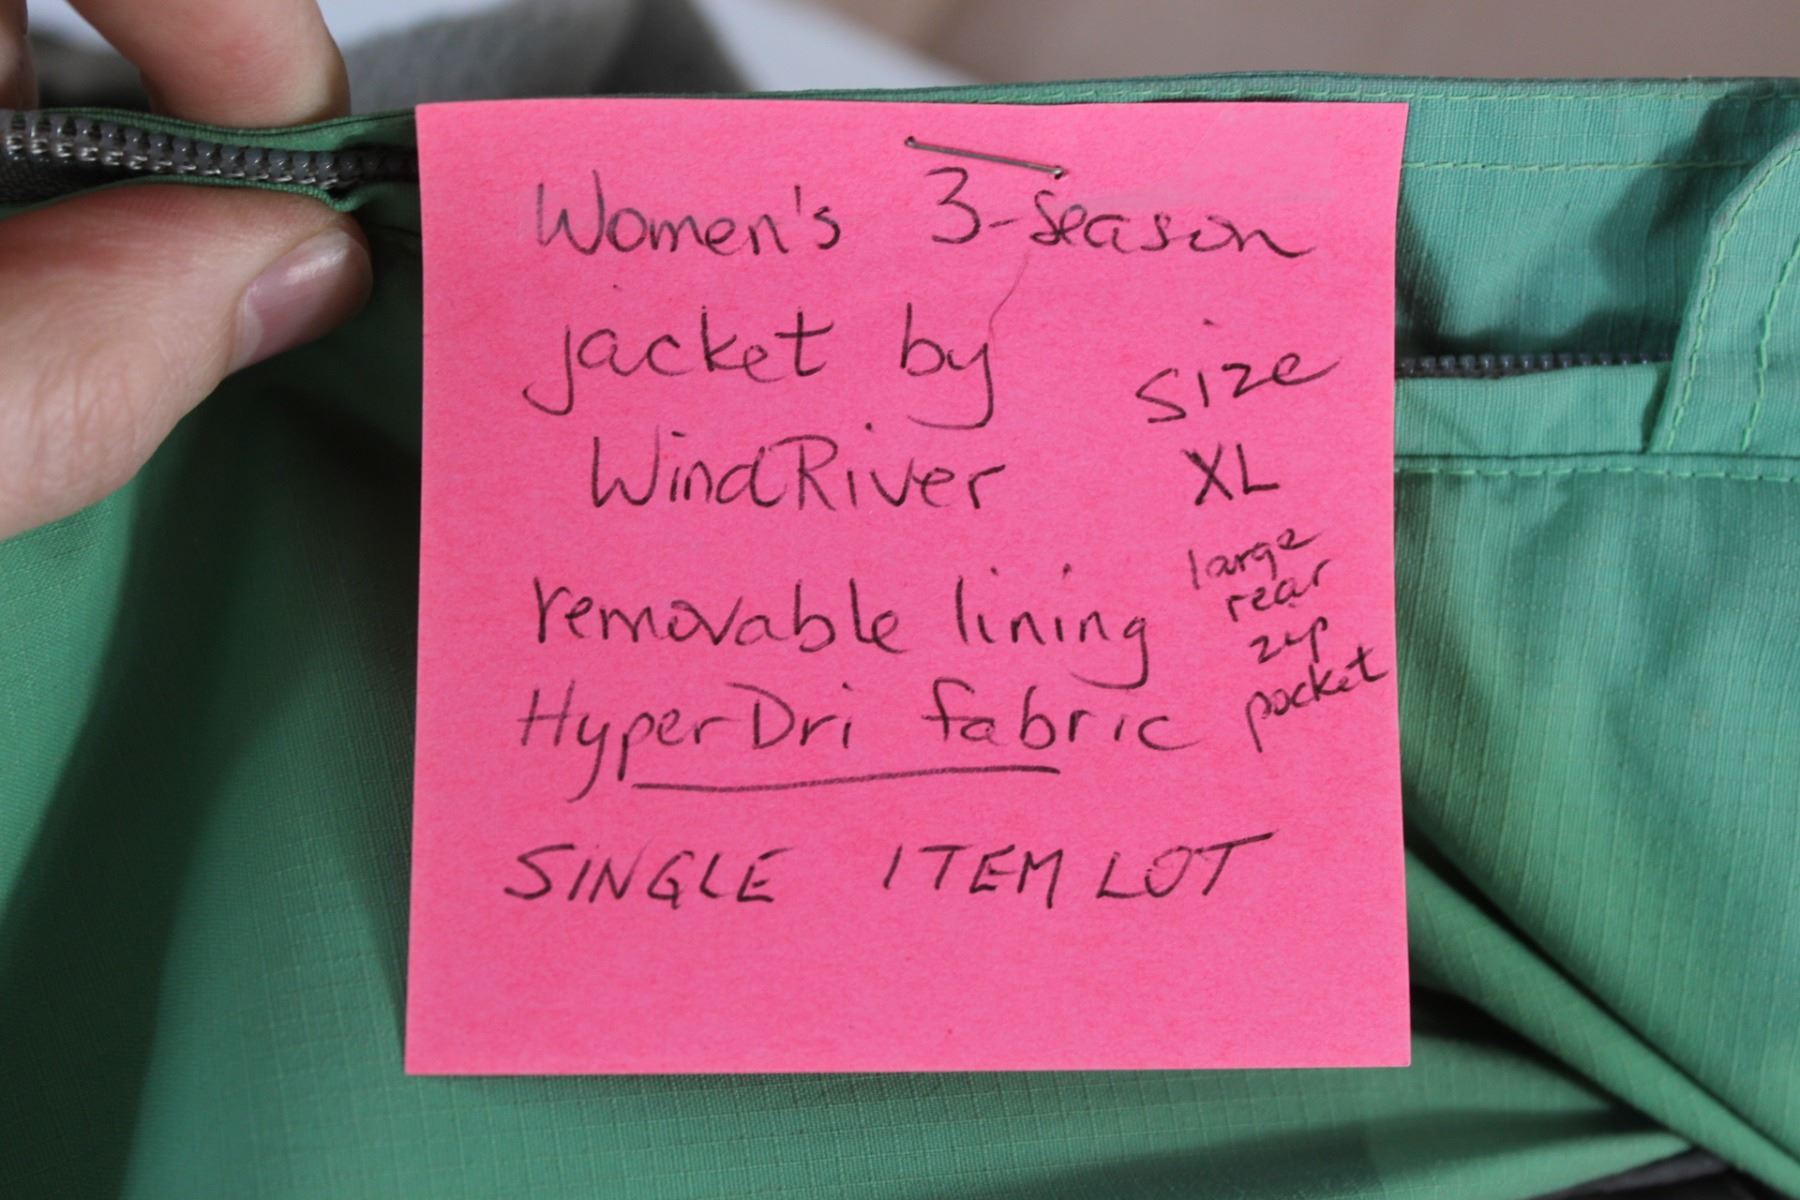 Women's 3-Season
jacket by
WindRiver
size
XL
large
rear
zip
pocket
removable lining
HyperDri fabric
SINGLE ITEM LOT